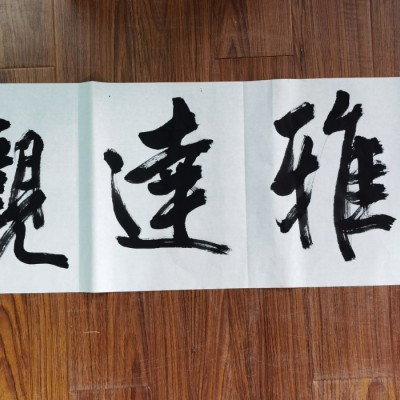 雅達觀